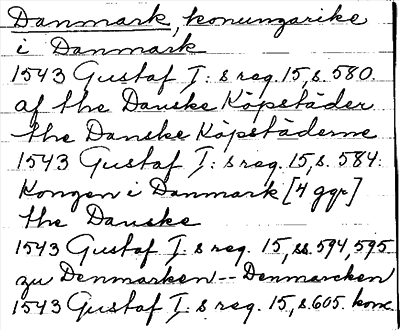 Danmark, konungarike
i Danmark
1543 Gustaf I: s reg. 15, s. 580.
af the Danske Köpstäder
the Danske Köpstäderne
1543 Gustaf I: s reg. 15, s. 584.
Kongen i Danmark [4 ggr]
the Danske
1543 Gustaf I: s reg. 15, ss. 594, 595
zu Denmarken -- Denmarcken
1543 Gustaf I: s reg. 15, s. 605. konc.